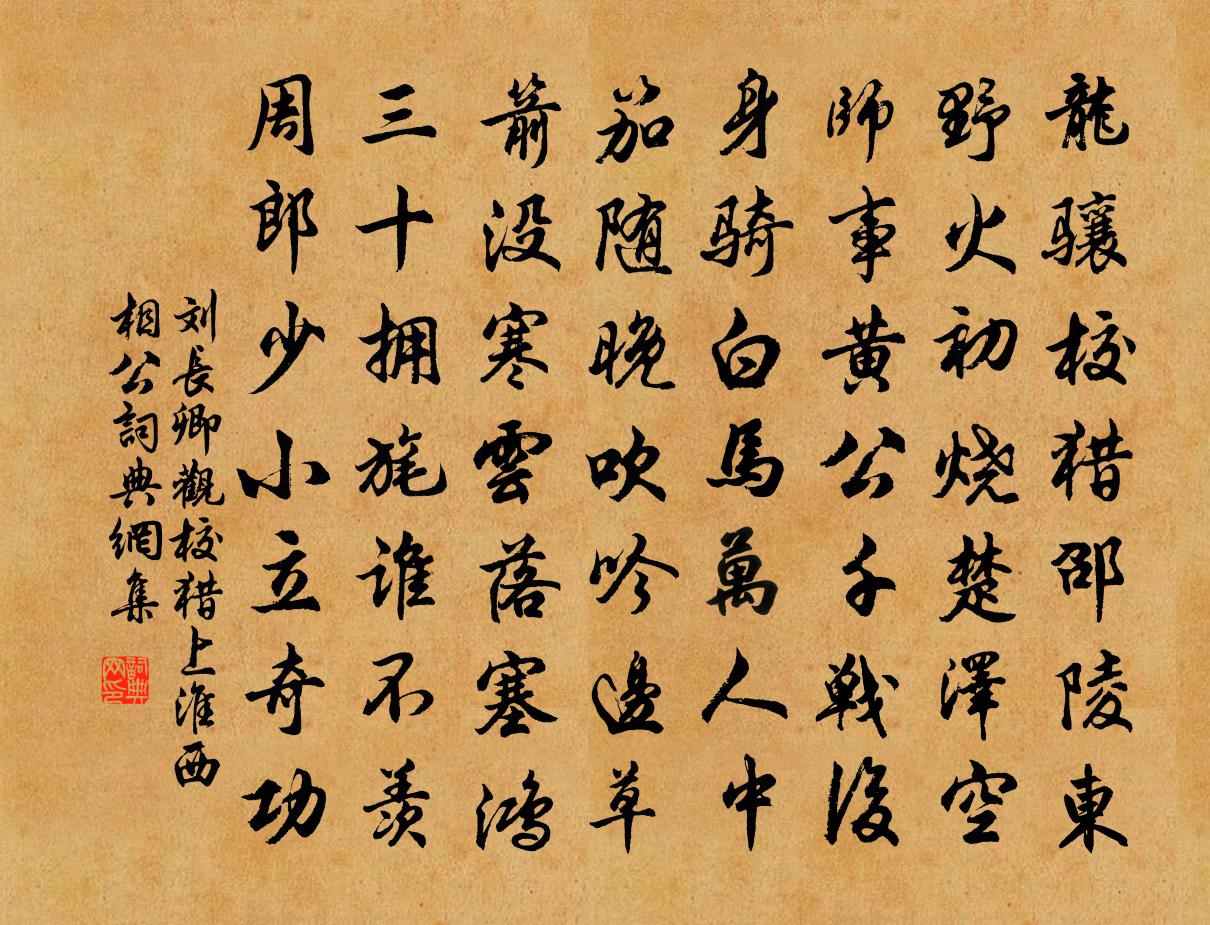 龍驤校猎邵陵東
野火初烧楚澤空
師事黄公千戦後
身骑白馬萬人中
笳随晚吹吟邊草
箭没寒雲落塞鴻
三十拥旄谁不羡
周郎少小立奇功
刘長卿觀校猎上淮西
相公詞典網集
詞典
网印